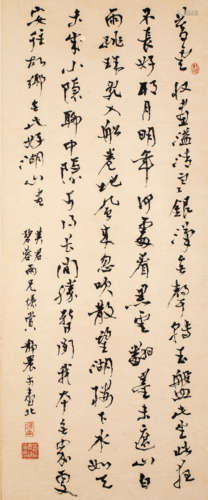 暮雲收盡溢清寒銀漢無聲轉玉盤此生此夜
不長好明月明年何處看黑雲翻墨未遮山白
雨跳珠亂入船卷地風來忽吹散望湖樓下水如天
未成小隱聊中隱可得長閒勝暫閒我本無家更
安往故鄉無此好湖山
美君
碧蓉兩兄儷賞 靜農於臺北